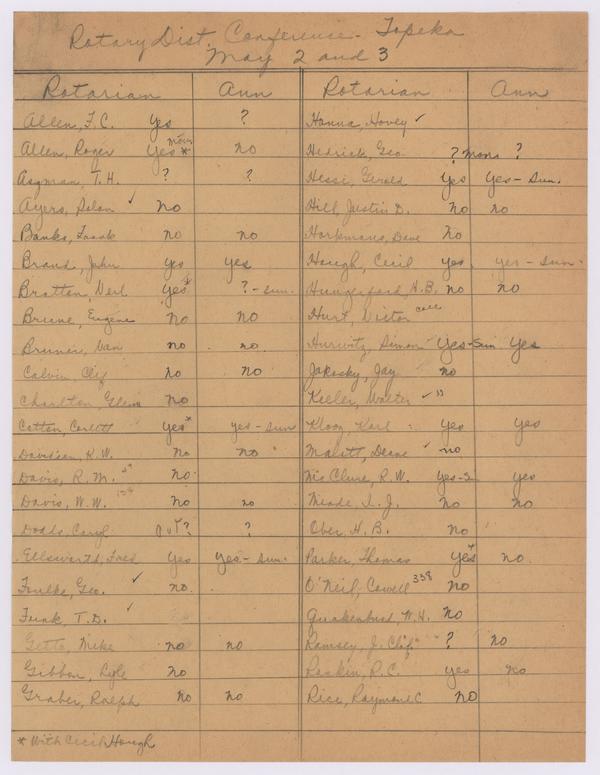 Rotary Dist. Conference - Topeka
May 2 and 3
Rotarian Ann Rotarian Ann
Allen, F.C. yes ? Hanna, Hovey ✓
Allen, Roger yes* no Hedrick, Geo. ? Mons ?
Asgman, T.H. ? ? Hessi, Gerold yes yes - Sun.
Ayers, Solon ✓ no Hill, Justin D. no no
Banks, Frank no no Horkmans, Dave no
Brand, John yes yes Hough, Cecil yes yes - sun.
Bratton, Verl yes* ? - sun. Hungerford, H.B. no no
Brune, Eugene no no Hurt, Victor call
Bruner, Van no no Hurwitz, Simon yes-Sun yes
Calvin, Clif no no Jakosky, Jay no
Charlton, Glenn no Keeler, Walter ✓ "
Cotton, Corlett yes* yes - sun Klooz, Karl yes yes
Davidson, K.W. no no Malott, Deane ✓ no
Davis, R.M. no McClure, R.W. yes-S yes
Davis, W.W. no no Meade, I.J. no no
Dodds, Caryl out? ? Ober, H.B. no
Ellsworth, Fred yes yes - sun. Parker, Thomas yes* no
Foulks, Geo. ✓ no O'Neil, Cowell 338 no
Funk, T.D. ✓ Quakenbush, W.H. no
Getto, Mike no no Ramsey, J. ? no
Gibbon, Lyle no Raskin, R.C. yes no
Graber, Ralph no no Rice, Raymond C no
* With Cecil Hough